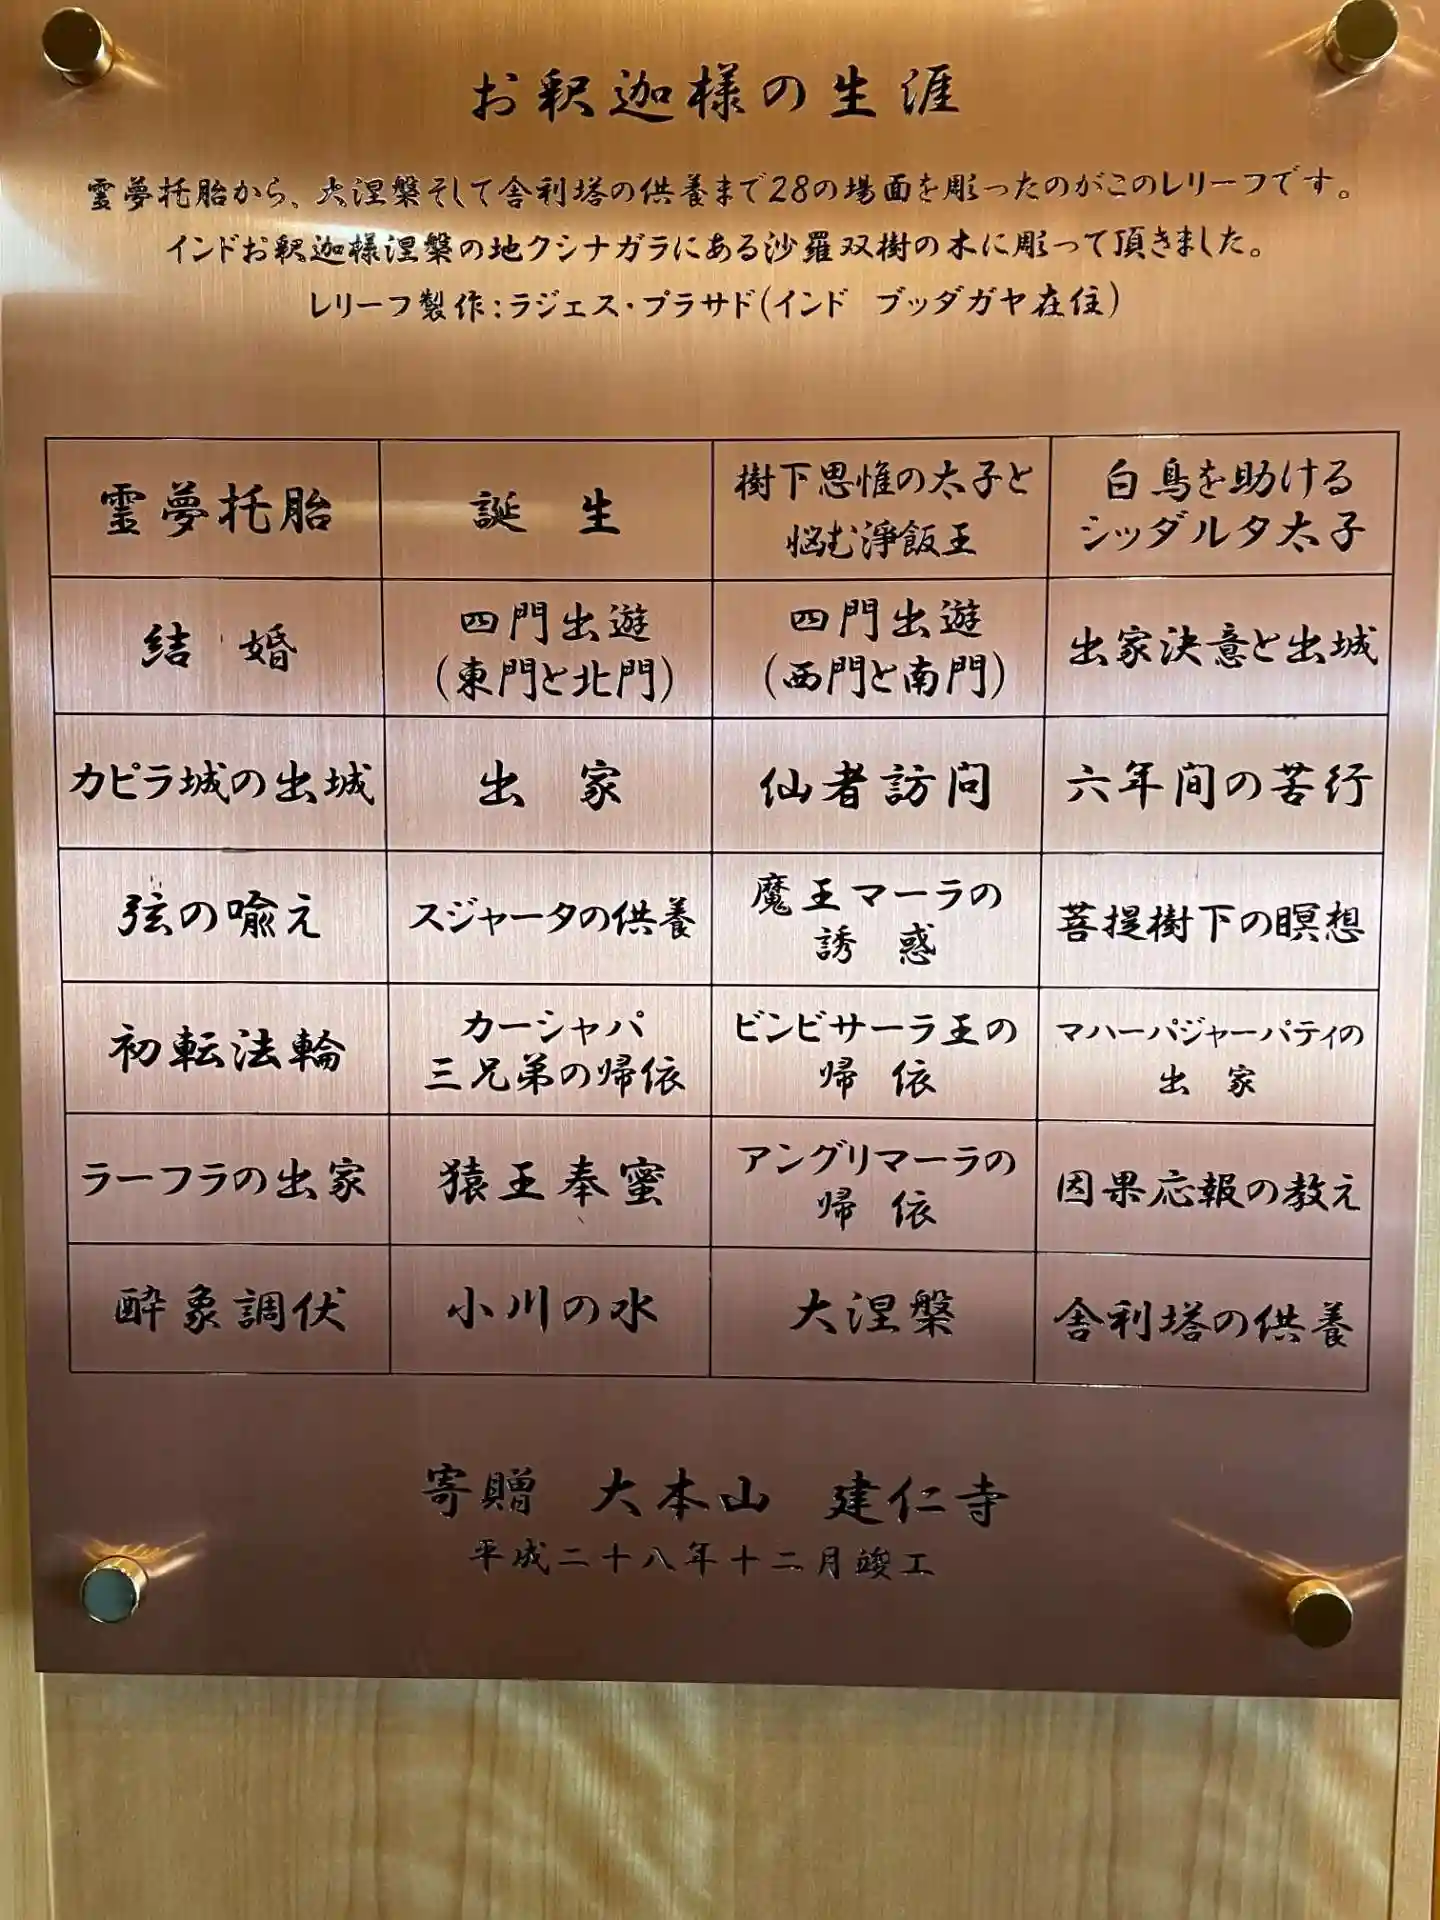 お釈迦様の生涯
霊夢托胎から、大涅槃そして舎利塔の供養まで28の場面を彫ったのがこのレリーフです。
インドお釈迦様涅槃の地クシナガラにある沙羅双樹の木に彫って頂きました。
レリーフ製作:ラジェス・プラサド(インド ブッダガヤ在住)
霊夢托胎
誕 生
樹下思惟の太子と
悩む淨飯王
白鳥を助ける
シッダルタ太子
結 婚
四門出遊
(東門と北門)
四門出遊
(西門と南門)
出家決意と出城
カピラ城の出城
出 家
仙者訪問
六年間の苦行
弦の喩え
スジャータの供養
魔王マーラの
誘 惑
菩提樹下の瞑想
初転法輪
カーシャパ
三兄弟の帰依
ビンビサーラ王の
帰 依
マハーパジャーパティの
出 家
ラーフラの出家
猿王奉蜜
アングリマーラの
帰 依
因果応報の教え
酔象調伏
小川の水
大涅槃
舎利塔の供養
寄贈 大本山 建仁寺
平成二十八年十二月竣工